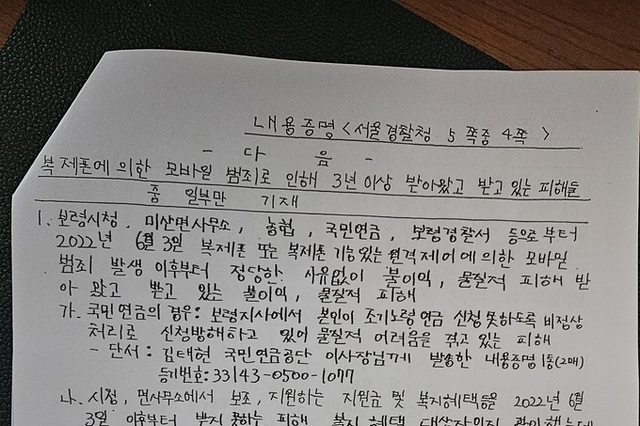 내용증명 <서울경찰청 5쪽중 4쪽>
- 다 음 -
복제폰에 의한 모바일 범죄로 인해 3년이상 받아왔고 받고 있는 피해들
중 일부만 기재
1. 보령시청, 미산면사무소, 농협, 국민연금, 보령경찰서 등으로부터
2022년 6월 3일 복제폰 또는 복제폰 기능있는 원격제어에 의한 모바일
범죄 발생 이후부터 정당한 사유없이 불이익, 물질적 피해 받
아 왔고 받고 있는 불이익, 물질적 피해
가. 국민연금의 경우: 보령지사에서 본인이 조기노령연금 신청 못하도록 비정상
처리로 신청방해하고 있어 물질적 어려움을 겪고 있는 피해
- 단서: 김태현 국민연금공단 이사장님께 발송한 내용증명 1통(2매)
등기번호: 33143-0500-1077
나. 시청, 면사무소에서 보조, 지원하는 지원금 및 복지혜택등을 2022년 6월
3일 이후부터 받지 못하는 피해 복지 혜택 대상자인지